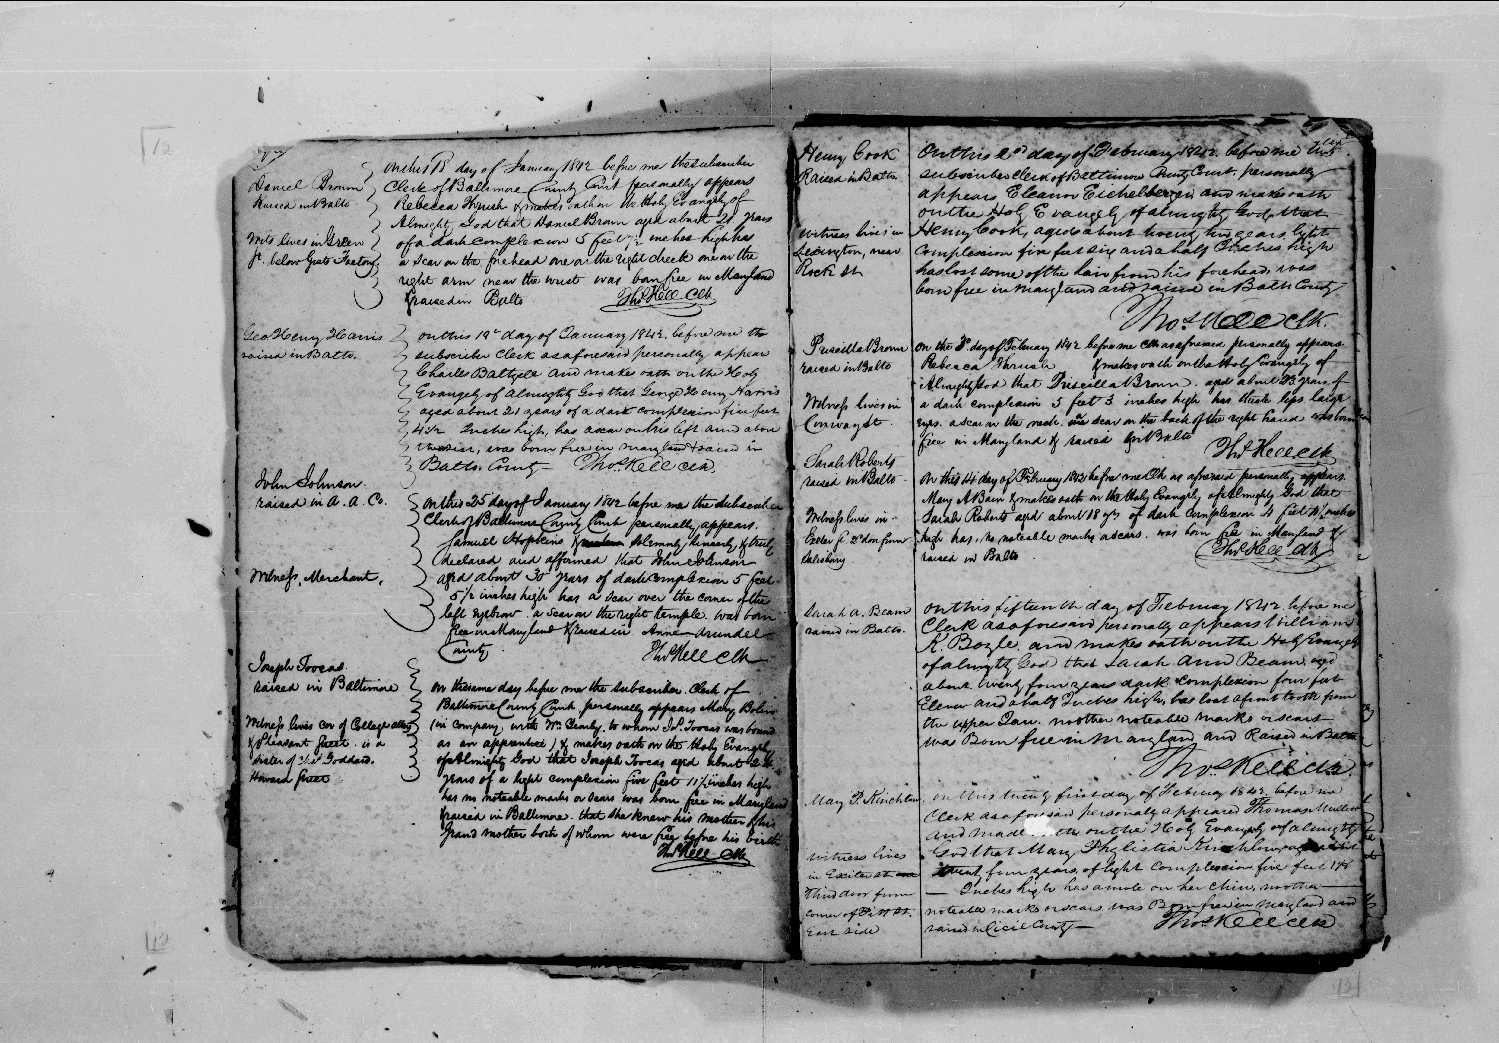 Daniel Brown
Raised in Balto
Wits lives in Green
St. below Gists Factory
On this 18 day of January 1842 before me the subscriber
Clerk of Baltimore County Court personally appears
Rebecca Thrush & makes oath on the Holy Evangely of
Almighty God that Daniel Brown aged about 21 years
of a dark complexion 5 feet 7½ inches high has
a scar on the forehead one on the right cheek one on the
right arm near the wrist was born free in Maryland
& raised in Balto. Thos Kell Clk
Geo Henry Harris
raised in Balto.
on this 19th day of January 1842. before me the
subscriber Clerk as aforesaid personally appear
Charles Baltzell and makes oath on the Holy
Evangely of Almighty God that George Henry Harris
aged about 21 years of a dark complexion five feet
4½ Inches high, has a scar on his left arm above
was born free in maryland & raised in
Balto. County Thos Kell Clk.
John Johnson.
raised in A. A. Co.
Witness, Merchant,
On this 25 day of January 1842 before me the subscriber
Clerk of Baltimore County Court personally appears.
Samuel Hopkins & solemnly sincerely & truly
declared and affirmed that John Johnson
aged about 35 years of dark complexion 5 feet
5½ inches high has a scar over the corner of the
left eyebrow. a scar on the right temple. was born
free in Maryland & raised in Anne Arundel
County. Thos Kell Clk
Joseph Toocas.
raised in Baltimore
Witness lives cor of College alley
& Pheasant Street. is a
sister of Goddard.
Howard Street
On the same day before me the subscriber. Clerk of
Baltimore County Court personally appears Mary
(in company with Wm to whom Js. Toocas was bound
as an apprentice) & makes oath on the Holy Evangely
of Almighty God that Joseph Toocas aged about
years of a light complexion five feet 11½ inches high
has no noteable marks or scars was born free in Maryland
& raised in Baltimore. that she knew his mother & his
Grand mother both of whom were free before his birth
Thos Kell Clk
Henry Cook
Raised in Balto.
Witness lives in
Lexington, near
Rock St
On this 2nd day of February 1842. before me the
subscriber Clerk of Baltimore County Court. personally
appears Eleanor Eichelberger and makes oath
on the Holy Evangely of almighty God, that
Henry Cook, aged about twenty two years, light
complexion five feet six and a half Inches high
has lost some of the hair from his forehead. was
born free in maryland and raised in Balto County
Thos Kell Clk.
Priscilla Brown
raised in Balto
Witness lives in
Conway St.
On the 8th day of February 1842 before me Clk as aforesaid personally appears.
Rebecca Thrush & makes oath on the Holy Evangely of
Almighty God that Priscilla Brown. aged about 23 years of
a dark complexion 5 feet 3 inches high has thick lips large
eyes. a scar on the neck. one scar on the back of the right hand was born
free in Maryland & raised in Balto
Thos Kell Clk
Sarah Roberts
raised in Balto
Witness lives in
Exeter St 2nd door from
Salisbury
On this 14 day of February 1842 before me Clk as aforesaid personally appears
Mary A Bain & makes oath on the Holy Evangely of Almighty God that
Sarah Roberts aged about 18 yrs of dark complexion 4 feet inches
high has no noteable marks or scars. was born free in Maryland &
raised in Balto Thos Kell Clk
Sarah A. Beam
raised in Balto.
on this fifteenth day of February 1842. before me
Clerk as aforesaid personally appears William
K. Boyle and makes oath on the Holy Evangely
of almighty God that Sarah Ann Beam, aged
about twenty four years dark complexion four feet
Eleven and a half Inches high, has lost a front tooth from
the upper Jaw. no other noteable marks or scars
was Born free in Maryland and Raised in Balto
Thos Kell Clk.
Mary P. Kinchlow
witness lives
in Exeter st
third door from
corner of Pitt St.
East side
on this twenty first day of February 1842. before me
Clerk as aforesaid personally appeared Thomas
and made on the Holy Evangely of almighty
God that Mary Kinchlow
twenty four years, of light Complexion five feet 1⅛
Inches high has a mole on her chin, no other
noteable marks or scars was Born free in maryland and
raised in Cecil County Thos Kell Clk